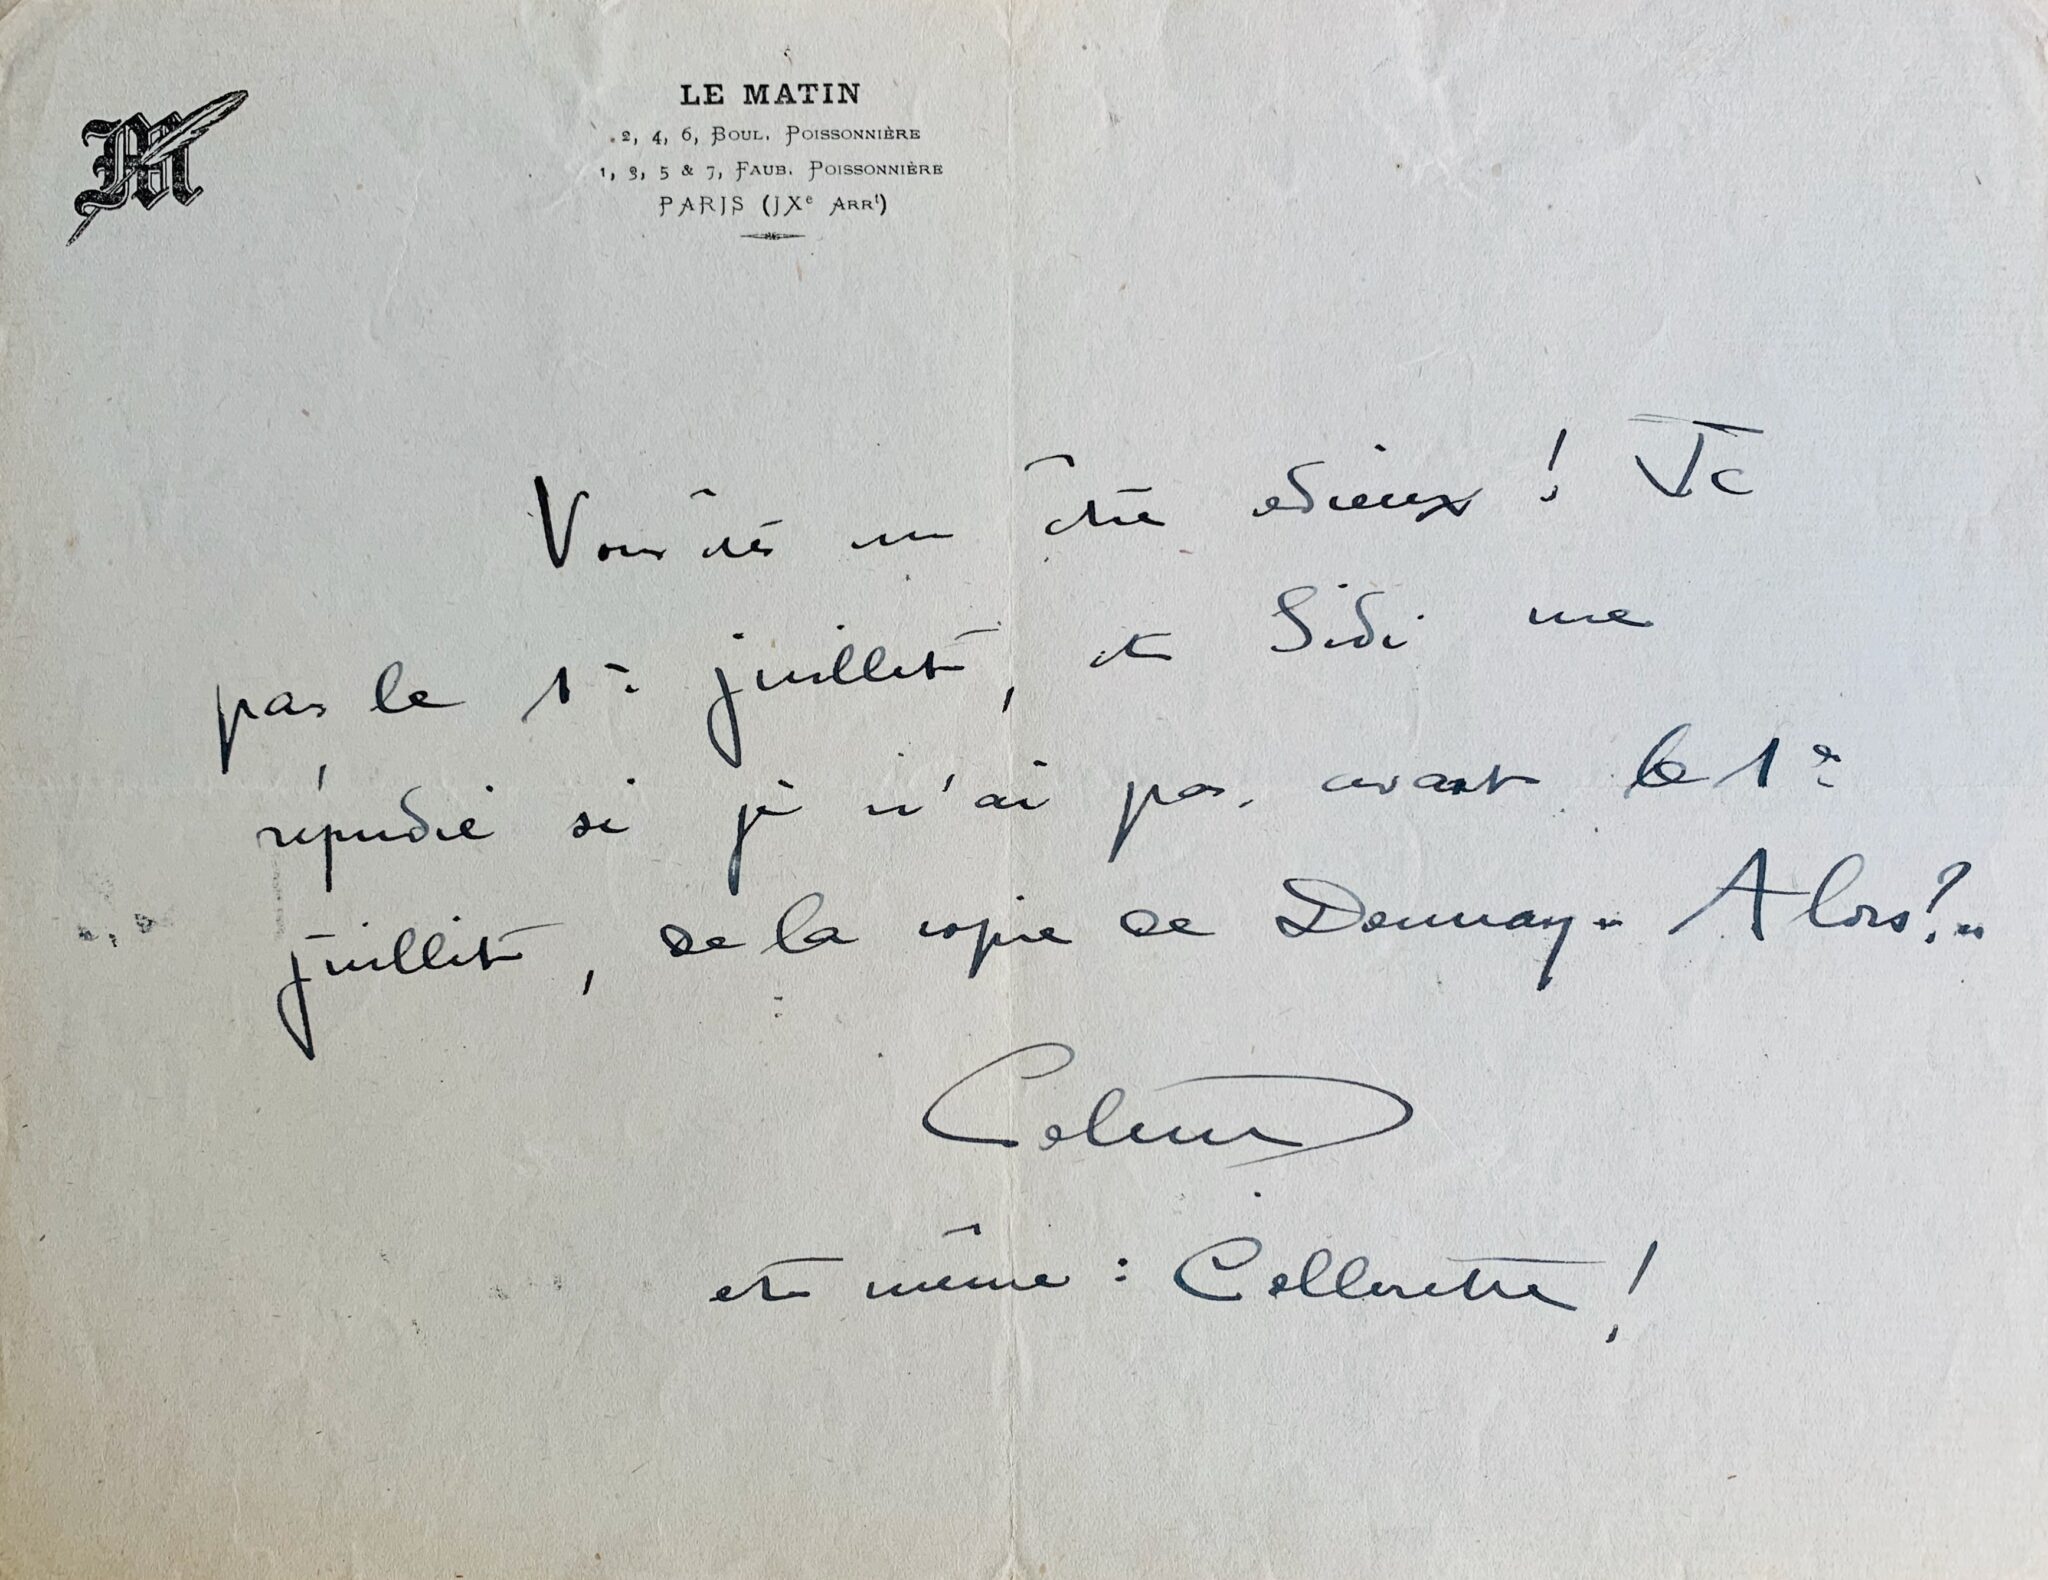 M
LE MATIN
2, 4, 6, Boul. Poissonnière
1, 3, 5 & 7, Faub. Poissonnière
PARIS (IXe Arrt)
Vous êtes un être odieux ! Je
pars le 1er juillet, et Sidi me
répudie si je n'ai pas, avant le 1er
juillet, de la copie de Donnay.. Alors?..
Colette
et même : Collerette !